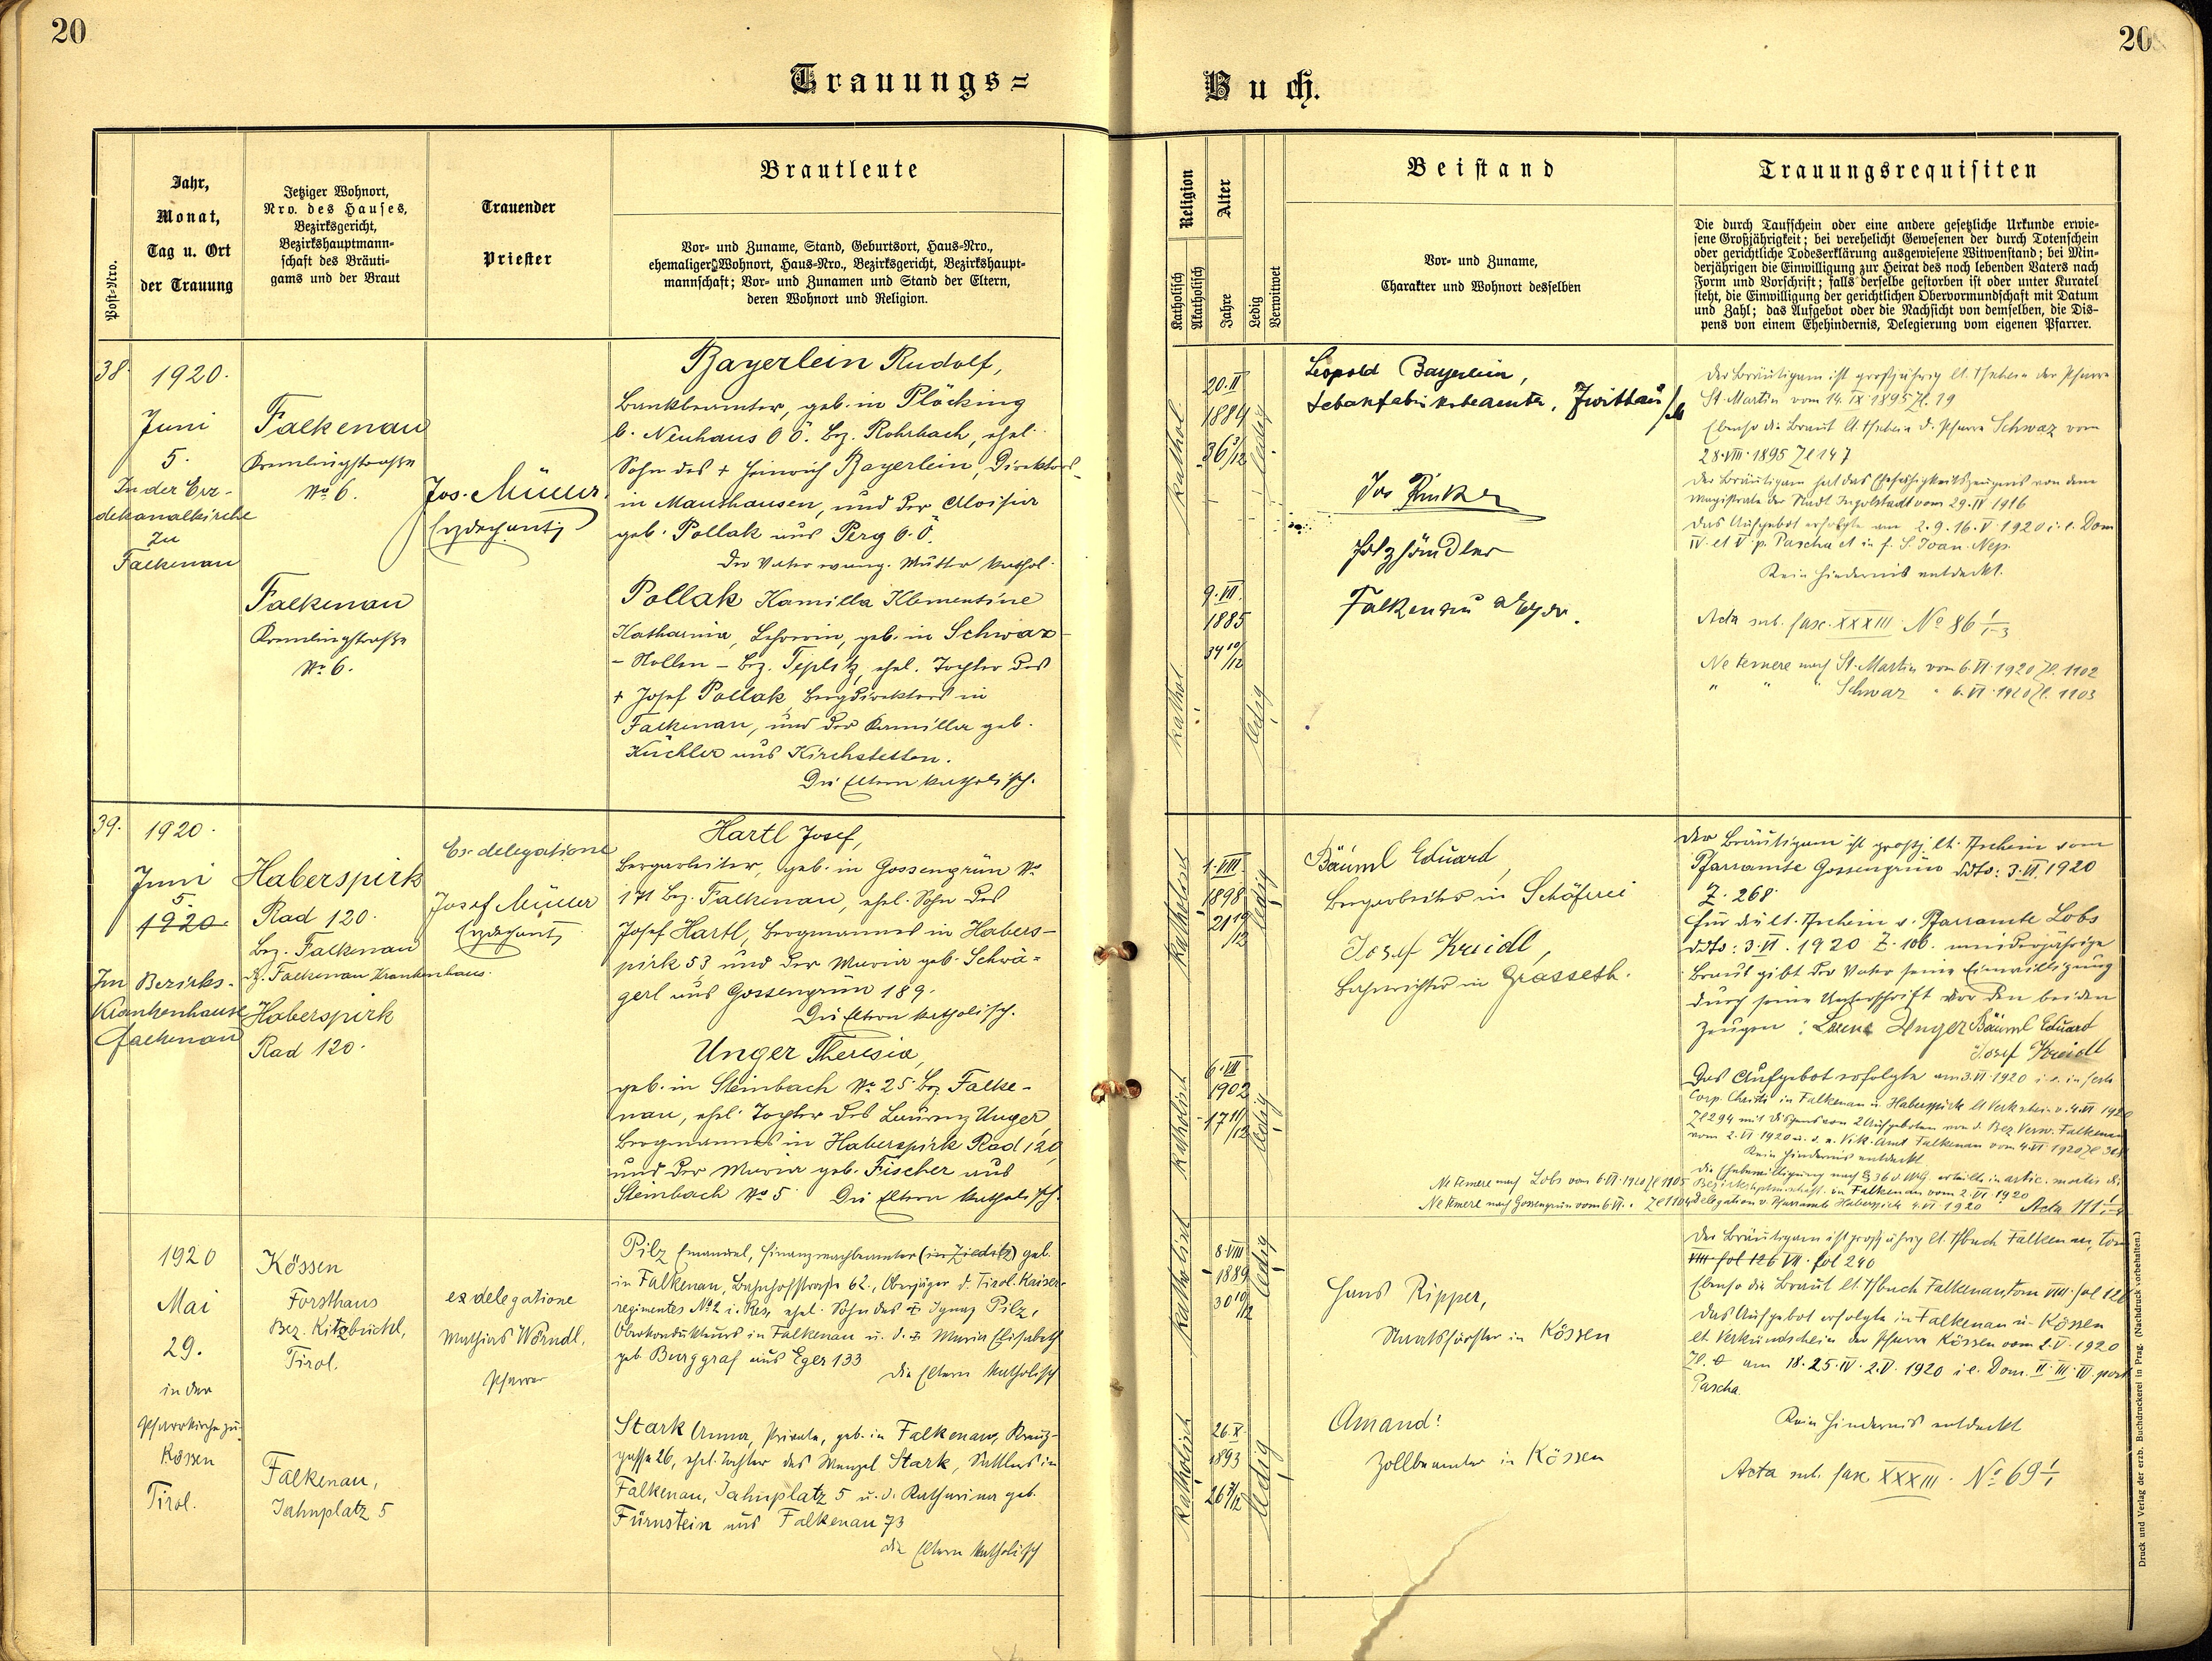 20
20
Trauungs=
Buch.
Post-Nro.
Jahr,
Monat,
Tag u. Ort
der Trauung
Jetziger Wohnort,
Nro. des Hauses,
Bezirksgericht,
Bezirkshauptmann-
schaft des Bräuti-
gams und der Braut
Trauender
Priester
Brautleute
Vor- und Zuname, Stand, Geburtsort, Haus-Nro.,
ehemaliger Wohnort, Haus-Nro., Bezirksgericht, Bezirkshaupt-
mannschaft; Vor- und Zunamen und Stand der Eltern,
deren Wohnort und Religion.
Religion
Katholisch
Akatholisch
Alter
Jahre
Ledig
Verwitwet
Beistand
Vor- und Zuname,
Charakter und Wohnort desselben
Trauungsrequisiten
Die durch Taufschein oder eine andere gesetzliche Urkunde erwie-
sene Großjährigkeit; bei verehelicht Gewesenen der durch Totenschein
oder gerichtliche Todeserklärung ausgewiesene Witwenstand; bei Min-
derjährigen die Einwilligung zur Heirat des noch lebenden Vaters nach
Form und Vorschrift; falls derselbe gestorben ist oder unter Kuratel
steht, die Einwilligung der gerichtlichen Obervormundschaft mit Datum
und Zahl; das Aufgebot oder die Nachsicht von demselben, die Dis-
pens von einem Ehehindernis, Delegierung vom eigenen Pfarrer.
38.
1920.
Juni
5.
In der Erz-
dekanalkirche
zu
Falkenau
Falkenau
No 6.
Falkenau
No 6.
Jos. Müller
Erzdechant
Bayerlein Rudolf,
Bankbeamter, geb. in Plöcking
b. Neuhaus O.Ö. Bez. Rohrbach, ehel.
Sohn des + Heinrich Bayerlein, Direktors
in Mauthausen, und der Aloisia
geb. Pollak aus Perg O.Ö.
Der Vater evang. Mutter kathol.
Pollak Kamilla Klementine
Katharina, Lehrerin, geb. in Schwaz-
- Bez. Teplitz, ehel. Tochter des
+ Josef Pollak, Bergdirektors in
Falkenau, und der Kamilla geb.
Küchler aus Kirchstetten.
Die Eltern katholisch.
kathol.
20.II
1884
36 3/12
ledig
kathol.
9.VII.
1885
34 10/12
ledig
Leopold Bayerlein,
Tabakfabriksbeamter, Zwittau
Jos
Holzhändler
Falkenau a/Eger.
Der Bräutigam ist großjährig lt. Tschein der Pfarre
St. Martin vom 14.IX.1895 Zl. 19
Ebenso die Braut lt Tschein d. Pfarre Schwaz vom
28.VIII.1895 Zl 147
Der Bräutigam hat das Ehefähigkeitszeugnis von dem
Magistrate der Stadt Ingolstadt vom 29.IV 1916
Das Aufgebot erfolgte am 2.9.16.V.1920 i.e. Dom
IV et V p. Pascha et in f. S. Joan. Nep.
Kein Hindernis entdeckt.
Acta sub. fasc. XXXIII. No 86 1/1-3
Ne temere nach St. Martin vom 6.VI.1920 Zl. 1102
" " " Schwaz " 6.VI.1920 Zl. 1103
39.
1920.
Juni
5.
1920.
Im Bezirks-
Krankenhause
Falkenau
Haberspirk
Rad 120.
Bez. Falkenau
Falkenau Krankenhaus.
Haberspirk
Rad 120.
Ex delegatione
Josef Müller
Erzdechant
Hartl Josef,
Bergarbeiter, geb. in Gossengrün No
171 Bez. Falkenau, ehel. Sohn des
Josef Hartl, Bergmannes in Habers-
pirk 53 und der Maria geb. Schwä-
gerl aus Gossengrün 189.
Die Eltern katholisch.
Unger Theresia,
geb. in Steinbach No 25 Bez Falke-
nau, ehel. Tochter des Laurenz Unger,
Bergmannes in Haberspirk Rad 120,
und der Maria geb. Fischer aus
Steinbach No 5. Die Eltern katholisch.
katholisch
1.VIII.
1898
21 10/12
ledig
katholisch
6.VII
1902
17 11/12
ledig
Bäuml Eduard,
Bergarbeiter in Schäferei
Josef Kreidl,
in Grasseth.
Der Bräutigam ist großj. lt. Tschein vom
Pfarramte Gossengrün ddto: 3.VI.1920
Z. 268.
Für die lt. Tschein v. Pfarramte Lobs
ddto: 3.VI.1920 Z. 106. minderjährige
Braut gibt der Vater seine Einwilligung
durch seine Unterschrift vor den beiden
Zeugen: Unger Bäuml Eduard
Josef Kreidl
Das Aufgebot erfolgte am 3.VI.1920 i.e. in festo
Corp. Christi in Falkenau u. Haberspirk lt Verksch. v. 4.VI 1920
Zl 294 mit Dispens von 2 Aufgeboten von d. Bez Verw. Falkenau
vom 2.VI 1920 u. d. Vik. Amt Falkenau vom 4.VI 1920
Kein Hindernis entdeckt
Ne temere nach Lobs vom 6.VI.1920 Zl 1105
Ne temere nach Gossengrün vom 6.VI. Zl 1104
Delegation v. Pfarramte Haberspirk 4.VI.1920 Acta 111
1920
Mai
29.
in der
Pfarrkirche zu
Kössen
Tirol.
Kössen
Forsthaus
Bez. Kitzbüchel,
Tirol.
Falkenau,
Jahnplatz 5
ex delegatione
Mathias Wörndl,
Pfarrer
Pilz Emanuel, Finanzwachbeamter (in Zieditz) geb.
in Falkenau, Bahnhofstraße 62., Oberjäger d. Tirol. Kaiser-
regimentes No 2 i. Res, ehel. Sohn des + Ignaz Pilz,
Oberkondukteurs in Falkenau u. d. + Maria Elisabeth
geb. Burggraf aus Eger 133
Die Eltern katholisch
Stark Anna, Private, geb. in Falkenau, Kreuz-
gasse 26, ehel. Tochter des Wenzel Stark, Sattlers in
Falkenau, Jahnplatz 5 u. d. Katharina geb.
Fürnstein aus Falkenau 73
Die Eltern katholisch
katholisch
8.VIII
1889
30 10/12
ledig
katholisch
26.X.
1893
26 7/12
ledig
Hans Ripper,
Staatsförster in Kössen
Amand
Zollbeamter in Kössen
Der Bräutigam ist großjährig lt. Tbuch Falkenau, tom
VIII fol 126 VII. fol 240
Ebenso die Braut lt. Tbuch Falkenau, tom VIII fol 126
Das Aufgebot erfolgte in Falkenau u. Kössen
lt. Verkündschein der Pfarre Kössen vom 2.V.1920
am 18.25.IV.2.V.1920 i.e. Dom. II.III.IV.post
Pascha.
Kein Hindernis entdeckt
Acta sub. fasc XXXIII. No 69 1/1
Druck und Verlag der erzb. Buchdruckerei in Prag. (Nachdruck vorbehalten.)